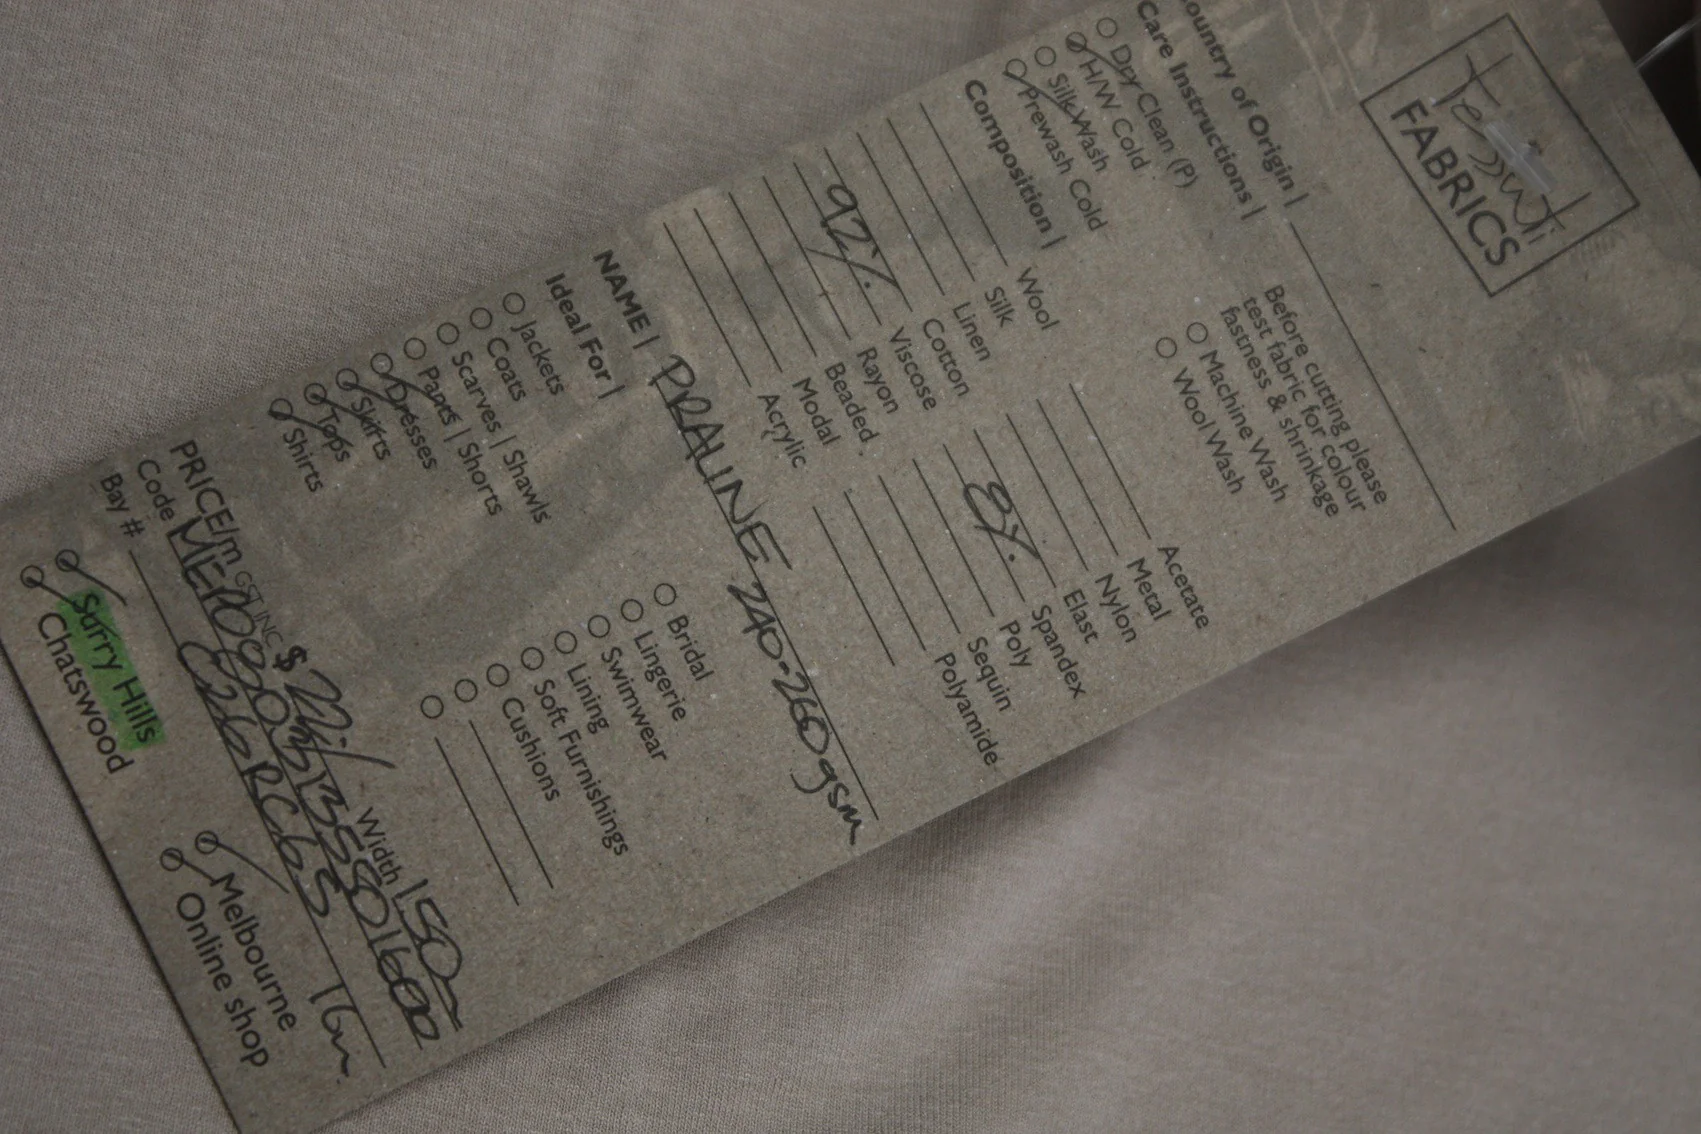 Tessuti
FABRICS
Country of Origin |
Care Instructions |
Before cutting please
test fabric for colour
fastness & shrinkage
Dry Clean (P)
H/W Cold
Silk Wash
Prewash Cold
Machine Wash
Wool Wash
Composition |
Wool
Silk
Linen
Cotton
92% Viscose
Rayon
Beaded
Modal
Acrylic
Acetate
Metal
Nylon
Elast
8% Spandex
Poly
Sequin
Polyamide
NAME | PRALINE 240-260gsm
Ideal For |
Jackets
Coats
Scarves | Shawls
Pants | Shorts
Dresses
Skirts
Tops
Shirts
Bridal
Lingerie
Swimwear
Lining
Soft Furnishings
Cushions
PRICE/m GST INC $ 22/ Width 150
Code
Bay # C26RC65
Surry Hills
Chatswood
Melbourne
Online shop